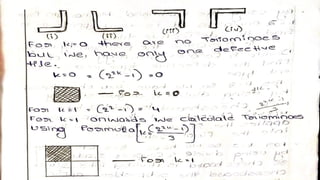 (i) (ii) (iii) (iv)
For k=0 there are no Triominoes
but we have only one defective
tile.
k=0 = (2²ᵏ-1) =0
— For k=0
For k=1 = (2²-1) = 4
For k=1 onwards we calculate Triominoes
Using Formula
— For k=1